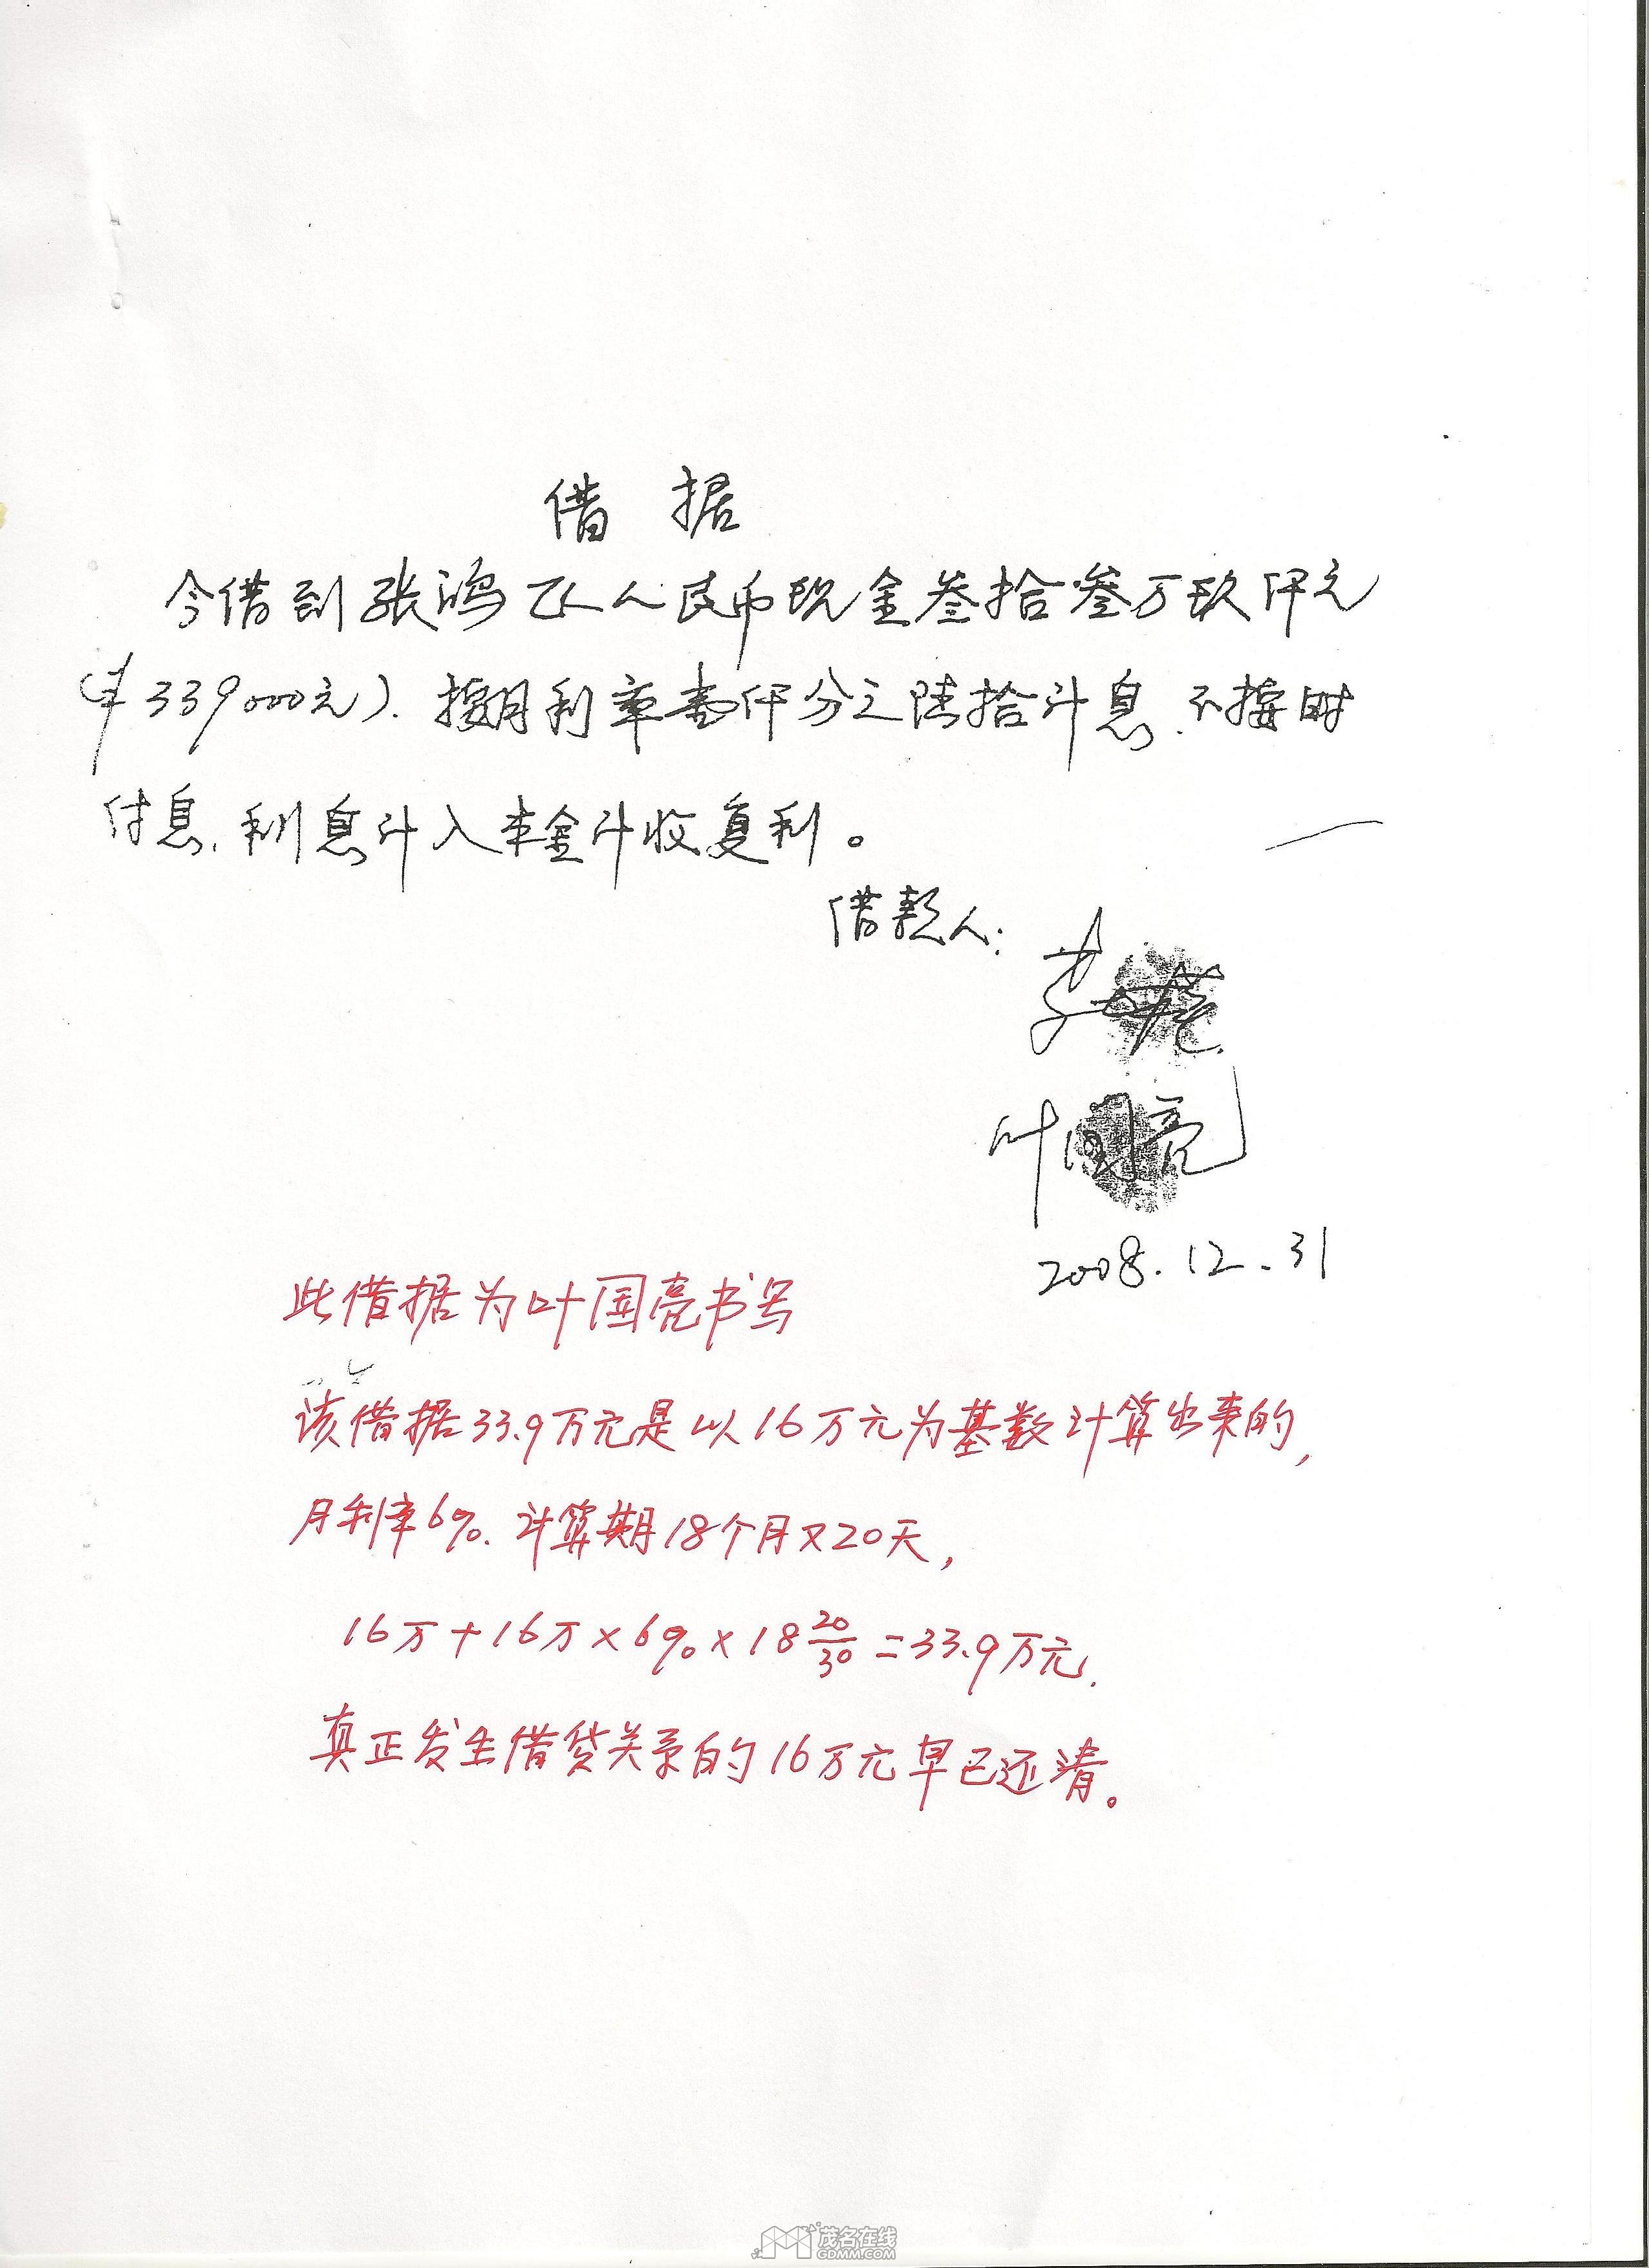 借据
今借到张鸿飞人民币现金叁拾叁万玖仟元
(¥339000元).按月利率壹仟分之陆拾计息.不按时
付息.利息计入本金计收复利。
借款人:
叶国亮
2008.12.31
此借据为叶国亮书写
该借据33.9万元是以16万元为基数计算出来的,
月利率6%.计算期18个月又20天,
16万+16万×6%×18 20/30=33.9万元.
真正发生借贷关系的16万元早已还清。
茂名在线
GDMM.COM